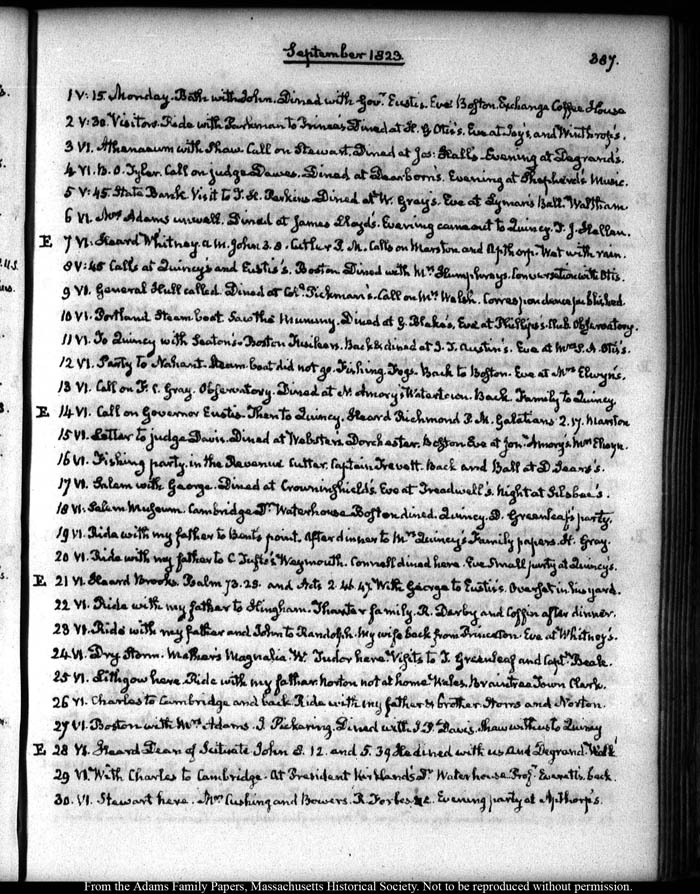 September 1823.
387.
1 V:15. Monday. Bath with John. Dined with Govr. Eustis. Eve Boston. Exchange Coffee House
2 V:30. Visitors. Ride with Parkman to Prince's. Dined at H. G. Otis's. Eve at Ivy's, and Winthrop's.
3 VI. Athenaeum with Shaw. Call on Stewart. Dined at Jos: Hall's. Evening at Degrand's.
4 VI. B. O. Tyler. Call on Judge Dawes. Dined at Dearborn's. Evening at Shepherd's Music.
5 V:45. State Bank. Visit to T. H. Perkins. Dined at W. Gray's. Eve at Lyman's Ball. Waltham
6 VI. Mrs Adams unwell. Dined at James Lloyd's. Evening came out to Quincy. T. J. Hellen.
E 7 VI: Heard Whitney a.m. John 3. 8. Cutler P. M. Calls on Marston and Apthorp. Wet with rain.
8 V:45 Calls at Quincy's and Eustis's. Boston. Dined with Mrs Humphreys. Conversation with Otis.
9 VI. General Hull called. Dined at Coll. Pickman's. Call on Mrs Walsh. Correspondence published.
10 VI. Portland Steam boat. Saw the Mummy. Dined at G. Blake's, Eve at Phillips's. Club. Observatory.
11 VI. To Quincy with Seaton's. Boston Fusileers. Back & dined at I. T. Austin's. Eve at Mrs S. A. Otis's.
12 VI. Party to Nahant. Steam boat did not go. Fishing. Fogs. Back to Boston. Eve at Mrs Elwyn's.
13 VI. Call on F. C. Gray. Observatory. Dined at Amory's Watertown. Back. Family to Quincy
E 14 VI. Call on Governor Eustis. Then to Quincy. Heard Richmond P. M. Galatians 2. 17. Marston
15 VI. Letter to judge Davis. Dined at Webster's Dorchester. Boston Eve at Jonn. Amory's Mrs Elwyn.
16 VI. Fishing party, in the Revenue Cutter. Captain Trevett. Back and Ball at D. Sears's.
17 VI. Salem with George. Dined at Crowninshield's. Eve at Treadwell's. Night at Silsbee's.
18 VI. Salem Museum. Cambridge Dr. Waterhouse. Boston dined. Quincy. D. Greenleaf's party.
19 VI. Ride with my father to Bent's point. After dinner to Mrs Quincy's. Family papers. H. Gray.
20 VI. Ride with my father to C. Tufts's Weymouth. Connell dined here. Eve Small party at Quincy's.
E 21 VI. Heard Brooks. Psalm 73. 28. and Acts 2. 46. 47. With George to Eustis's. Overset in his yard.
22 VI. Ride with my father to Hingham. Thaxter family. R. Derby and Coffin after dinner.
23 VI. Ride with my father and John to Randolph. My wife back from Princeton. Eve at Whitney's.
24 VI. Dry Storm. Mather's Magnalia. W. Tudor here. Visits to T. Greenleaf and Captn. Beale.
25 VI. Lithgow here. Ride with my father. Norton not at home. Wales. Braintree Town Clerk.
26 VI. Charles to Cambridge and back. Ride with my father & brother. Storrs and Norton.
27 VI. Boston with Mrs Adams. T. Pickering. Dined with I. P. Davis. Shaw with us to Quincy
E 28 VI. Heard Dean of Scituate John 8. 12. and 5. 39. He dined with us and Degrand. Walk
29 VI. With Charles to Cambridge. At President Kirkland's. Dr. Waterhouse. Profr. Everett's. back.
30. VI. Stewart here. Mrs Cushing and Bowers. R. Forbes &c. Evening party at Apthorp's.
From the Adams Family Papers, Massachusetts Historical Society. Not to be reproduced without permission.